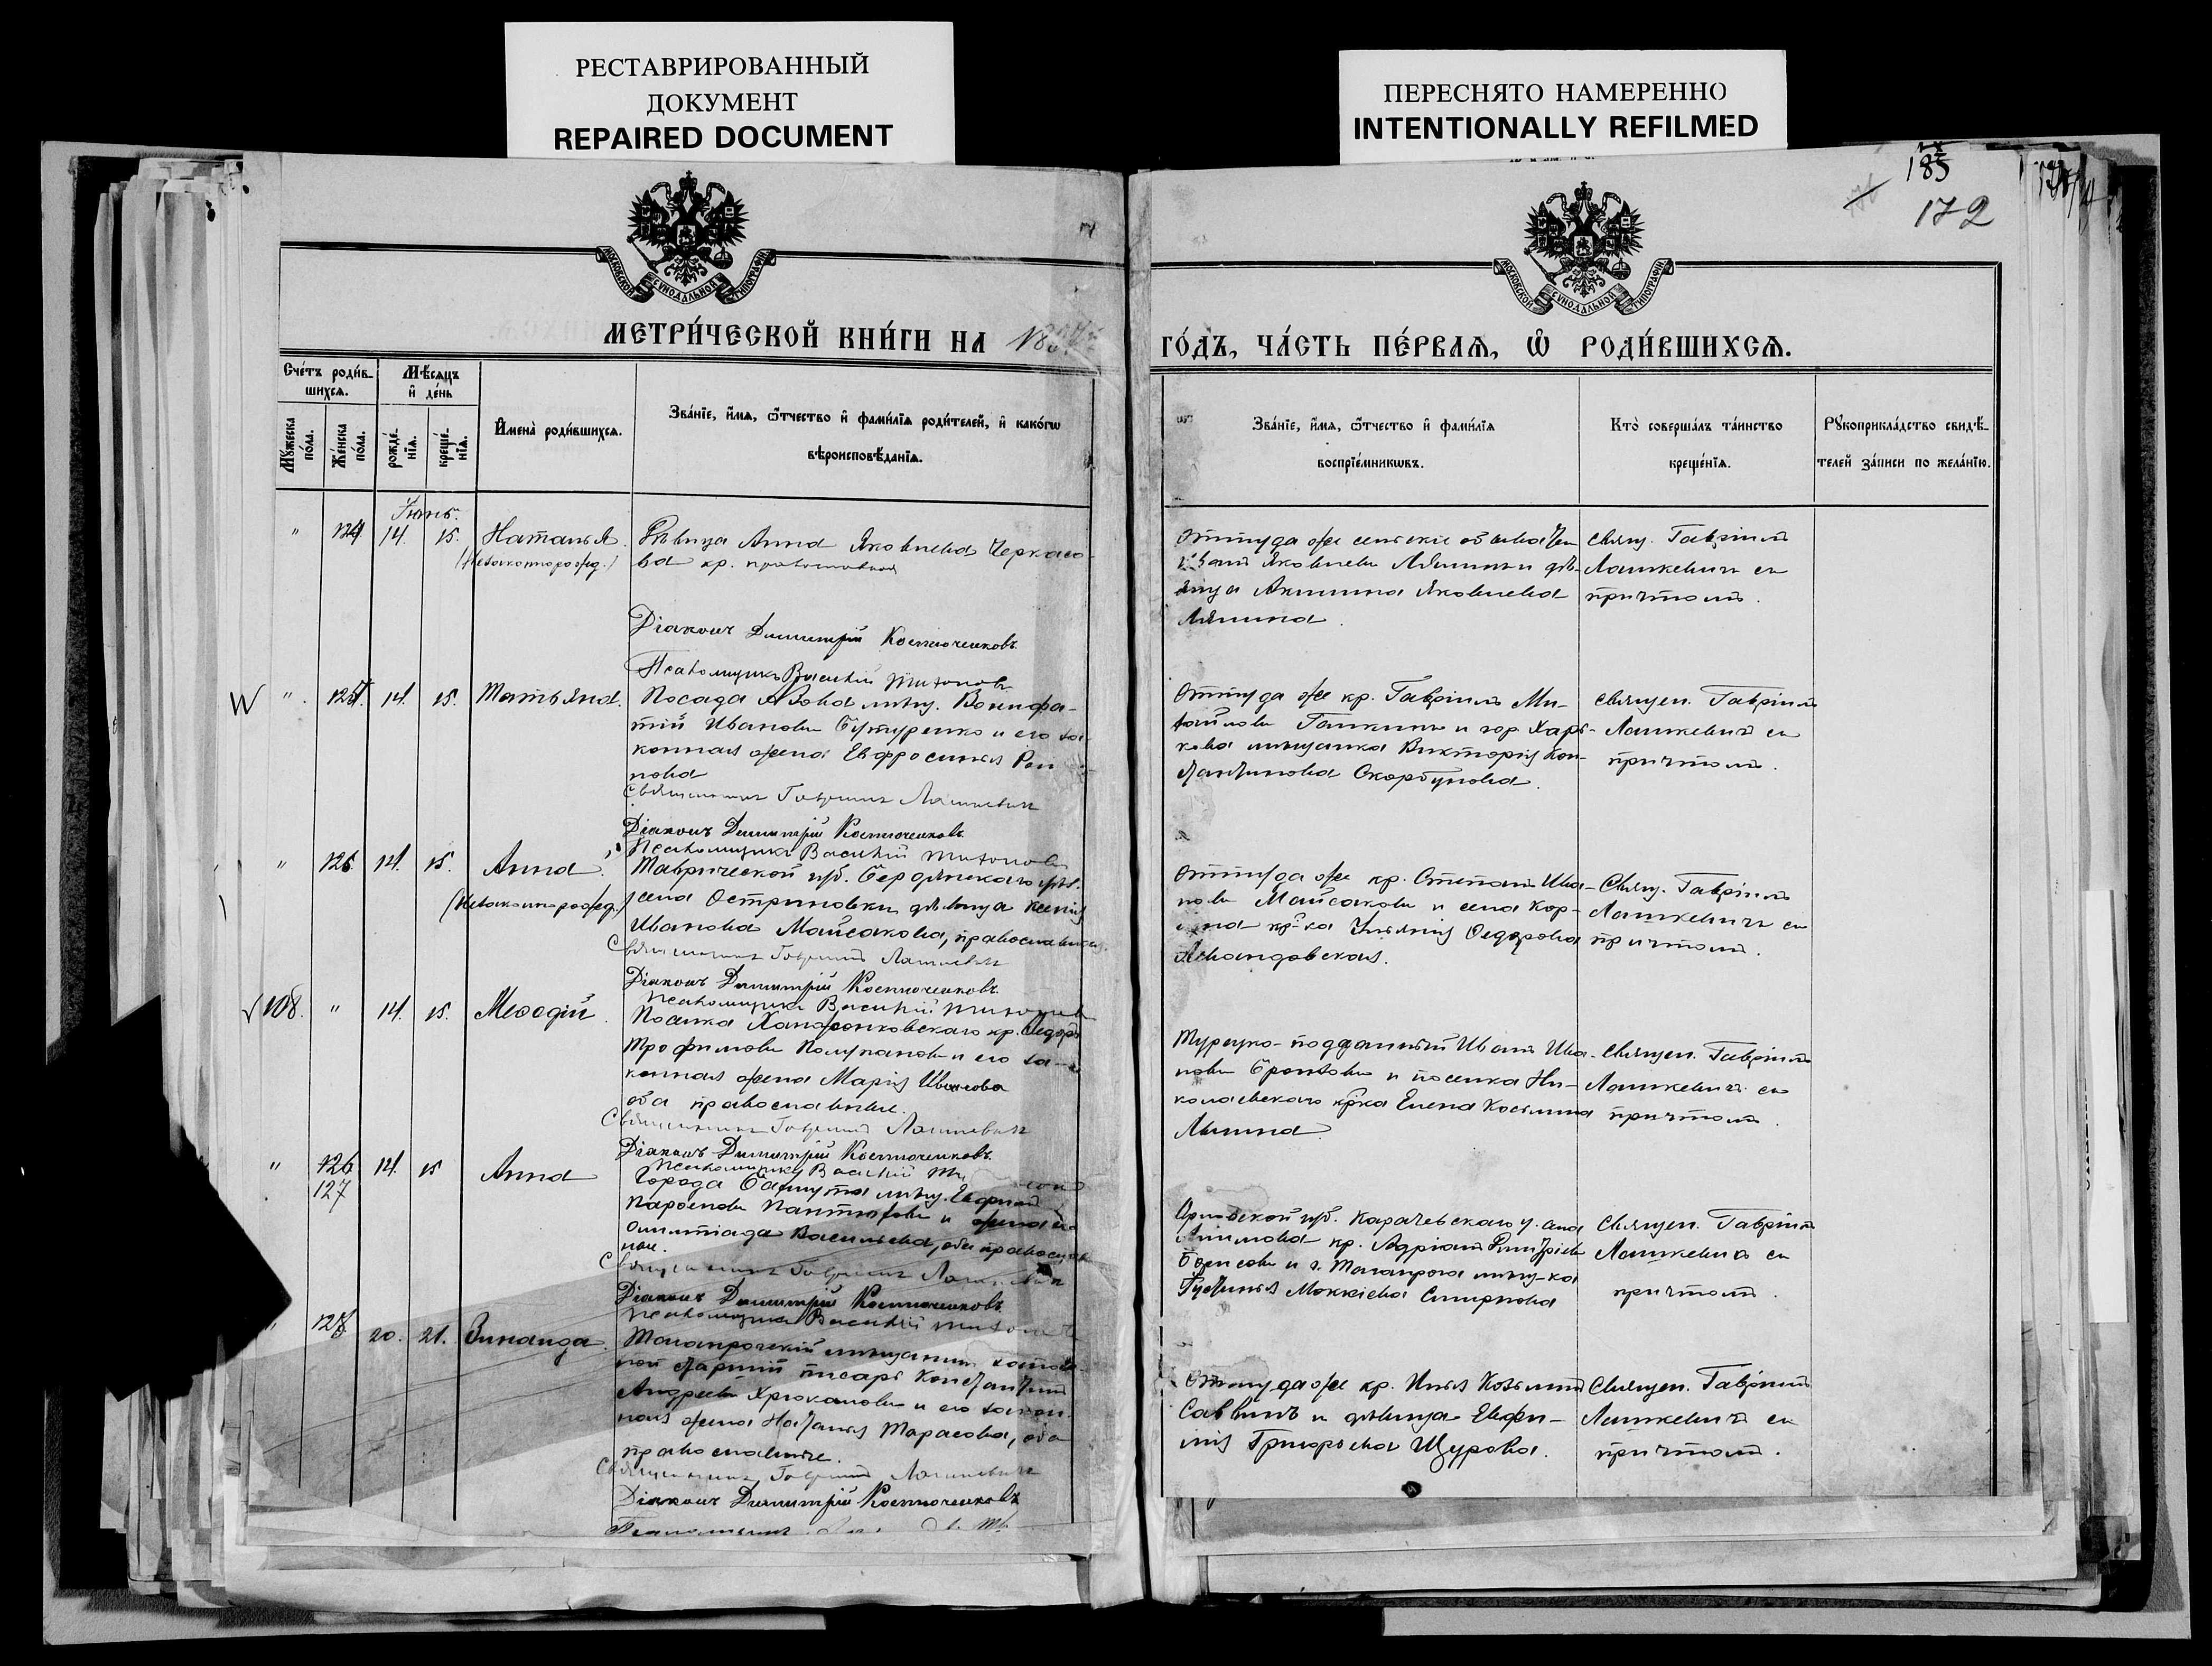 РЕСТАВРИРОВАННЫЙ
ДОКУМЕНТ
REPAIRED DOCUMENT
ПЕРЕСНЯТО НАМЕРЕННО
INTENTIONALLY REFILMED
185
172
МОСКОВСКОЙ СѴНОДАЛЬНОЙ ТИПОГРАФІИ
МОСКОВСКОЙ СѴНОДАЛЬНОЙ ТИПОГРАФІИ
МЕТРИ́ЧЕСКОЙ КНИ́ГИ НА
ГО́ДЪ, ЧА́СТЬ ПЕ́РВАЯ, Ѿ РОДИ́ВШИХСЯ.
Сче́тъ роди́в-
шихся.
Мѣ́сяцъ
и҆ де́нь
Мꙋ́жеска
по́ла.
Же́нска
по́ла.
рожде́-
нїя.
креще́-
нїя.
И҆мена̀ роди́вшихся.
Зва́нїе, и҆́мя, ѻ҆́тчество и҆ фами́лїя роди́телей, и҆ како́гѡ
вѣроисповѣ́данїя.
Зва́нїе, и҆́мя, ѻ҆́тчество и҆ фами́лїя
воспрїе́мникѡвъ.
Кто̀ соверша́лъ та́инство
креще́нїя.
Рꙋкоприкла́дство свидѣ́-
телей за́писи по жела́нїю.
Іюнь.
" 124 14. 15. Наталья.
(Незаконнорожд.)
Дѣвица Анна Яковлева Черкасо-
ва кр. православная
Діаконъ Димитрій Костюченковъ.
Псаломщикъ Василій Тихоновъ
Оттуда же сельскіе обыватели
Яковлевъ Лямин и дѣ-
вица Акилина Яковлева
Лямина.
Свящ. Гавріилъ
Лашкевичъ съ
причтомъ.
" 125 14. 15. Татьяна.
Посада Азова мѣщ. Вонифа-
тій Ивановъ Бутуренко и его за-
конная жена Евфросинія
Священникъ Гавріилъ Лашкевичъ
Діаконъ Димитрій Костюченковъ.
Псаломщикъ Василій Тихоновъ
Оттуда же кр. Гавріилъ Ми-
хайловъ Галкинъ и гор. Харь-
кова мѣщанка Викторія Кон-
стантинова Скорбунова.
Священ. Гавріилъ
Лашкевичъ съ
причтомъ.
" 126 14. 15. Анна.
(Незаконнорожд.)
Таврической губ. Бердянскаго уѣз.
села Остриковки дѣвица Ксенія
Иванова Майсакова, православная.
Священникъ Гавріилъ Лашкевичъ
Діаконъ Димитрій Костюченковъ.
Псаломщикъ Василій Тихоновъ
Оттуда же кр. Степанъ Ива-
новъ Майсаковъ и села Кор-
кр-ка Ульянія Ѳедорова
Свящ. Гавріилъ
Лашкевичъ съ
причтомъ.
108. " 14. 15. Меѳодій.
Поселка Ханженковскаго кр. Ѳедоръ
Трофимовъ Полупановъ и его за-
конная жена Марія Иванова
оба православные.
Священникъ Гавріилъ Лашкевичъ
Діаконъ Димитрій Костюченковъ.
Псаломщикъ Василій
Турецко-подданный Иванъ Ива-
новъ и поселка Ни-
колаевскаго кр-ка Елена Косьмина
Священ. Гавріилъ
Лашкевичъ съ
причтомъ.
" 126 14. 15 Анна
127
Города Бахмута мѣщ.
Парѳеновъ Пантюховъ и жена его
Олимпіада Васильева, оба православ-
ные.
Священникъ Гавріилъ
Діаконъ Димитрій Костюченковъ.
Псаломщикъ Василій Тихоновъ
Орловской губ. Карачевскаго у. села
кр. Адріанъ Димитріевъ
Борисовъ и г. Таганрога мѣщ-ка
Моккіева Смирнова
Священ. Гавріилъ
Лашкевичъ съ
причтомъ.
128 20. 21. Зинаида.
Таганрогскій мѣщанинъ
старшій писарь Константинъ
Андреевъ Хрюкаловъ и его закон-
ная жена Наталія Тарасова, оба
православные.
Священникъ Гавріилъ Лашкевичъ
Діаконъ Димитрій Костюченковъ
Оттуда же кр. Илья Козьминъ
Саввинъ и дѣвица Евфи-
мія Григорьева Щурова.
Священ. Гавріилъ
Лашкевичъ съ
причтомъ.